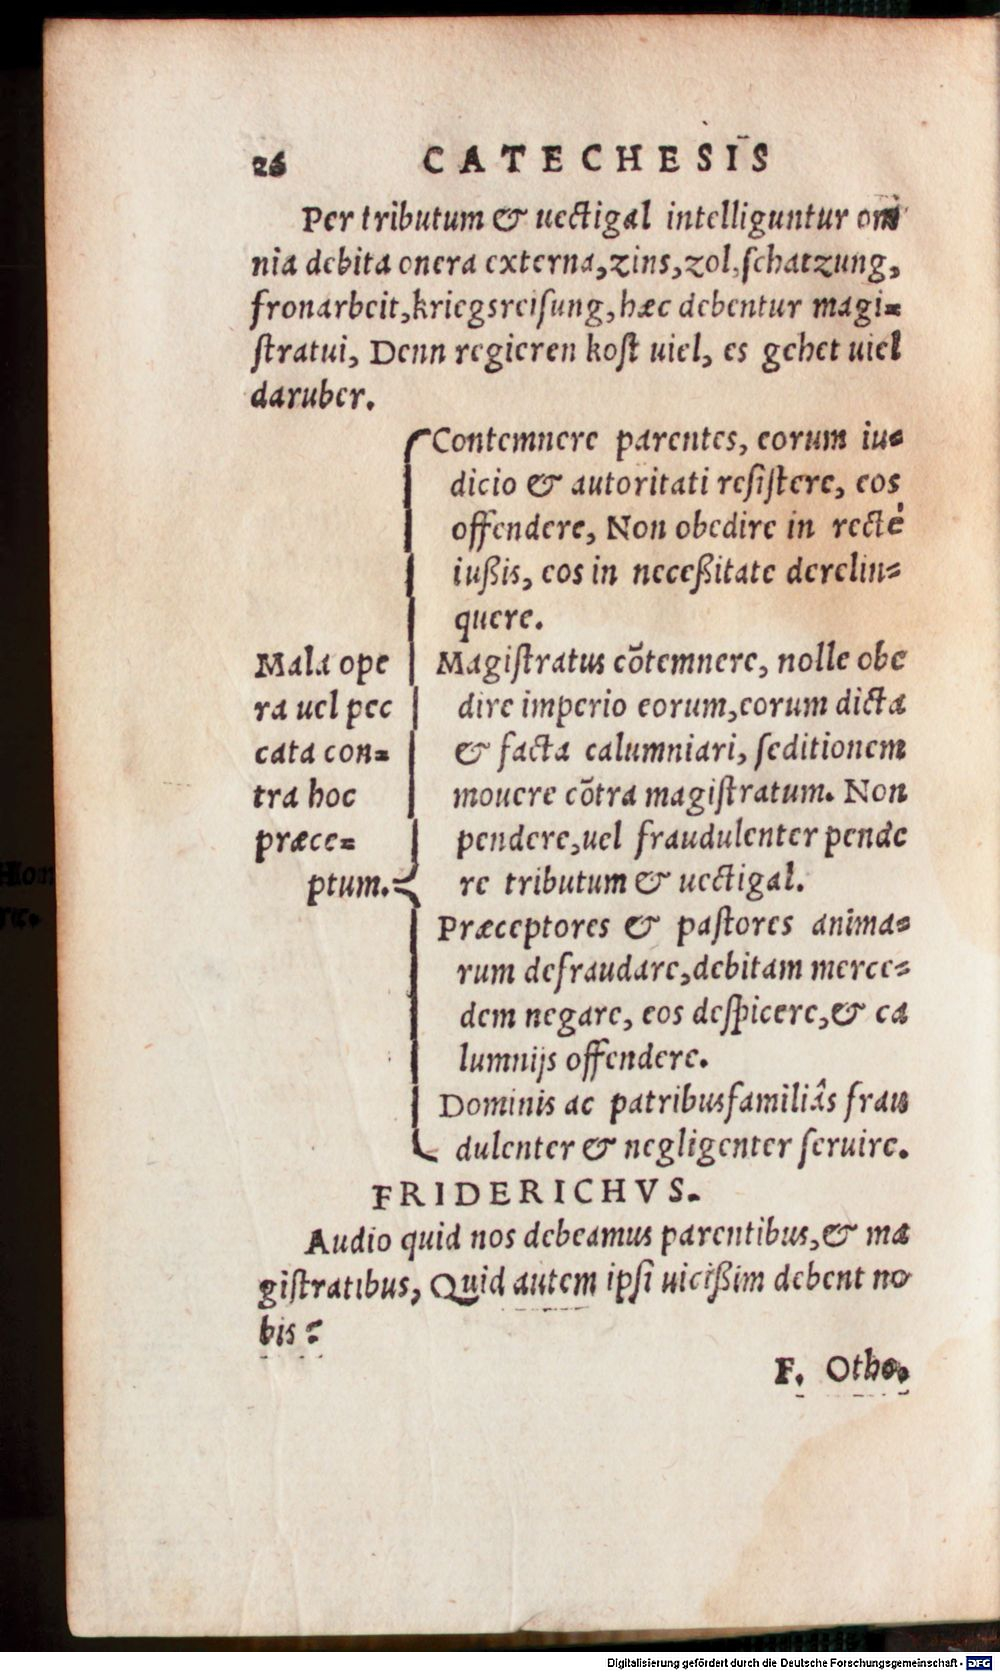 26 CATECHESIS
Per tributum & uectigal intelliguntur om
nia debita onera externa, zins, zol, schatzung,
fronarbeit, kriegsreisung, hæc debentur magi=
stratui, Denn regieren kost uiel, es gehet uiel
daruber.
Mala ope
ra uel pec
cata con=
tra hoc
præce=
ptum.
Contemnere parentes, eorum iu=
dicio & autoritati resistere, eos
offendere, Non obedire in rectè
iußis, eos in neceßitate derelin=
quere.
Magistratus cõtemnere, nolle obe
dire imperio eorum, eorum dicta
& facta calumniari, seditionem
mouere cõtra magistratum. Non
pendere, uel fraudulenter pende
re tributum & uectigal.
Præceptores & pastores anima=
rum defraudare, debitam merce=
dem negare, eos despicere, & ca
lumnijs offendere.
Dominis ac patribusfamiliâs frau
dulenter & negligenter seruire.
FRIDERICHVS.
Audio quid nos debeamus parentibus, & ma
gistratibus, Quid autem ipsi uicißim debent no
bis?
F. Otho.
Digitalisierung gefördert durch die Deutsche Forschungsgemeinschaft - DFG